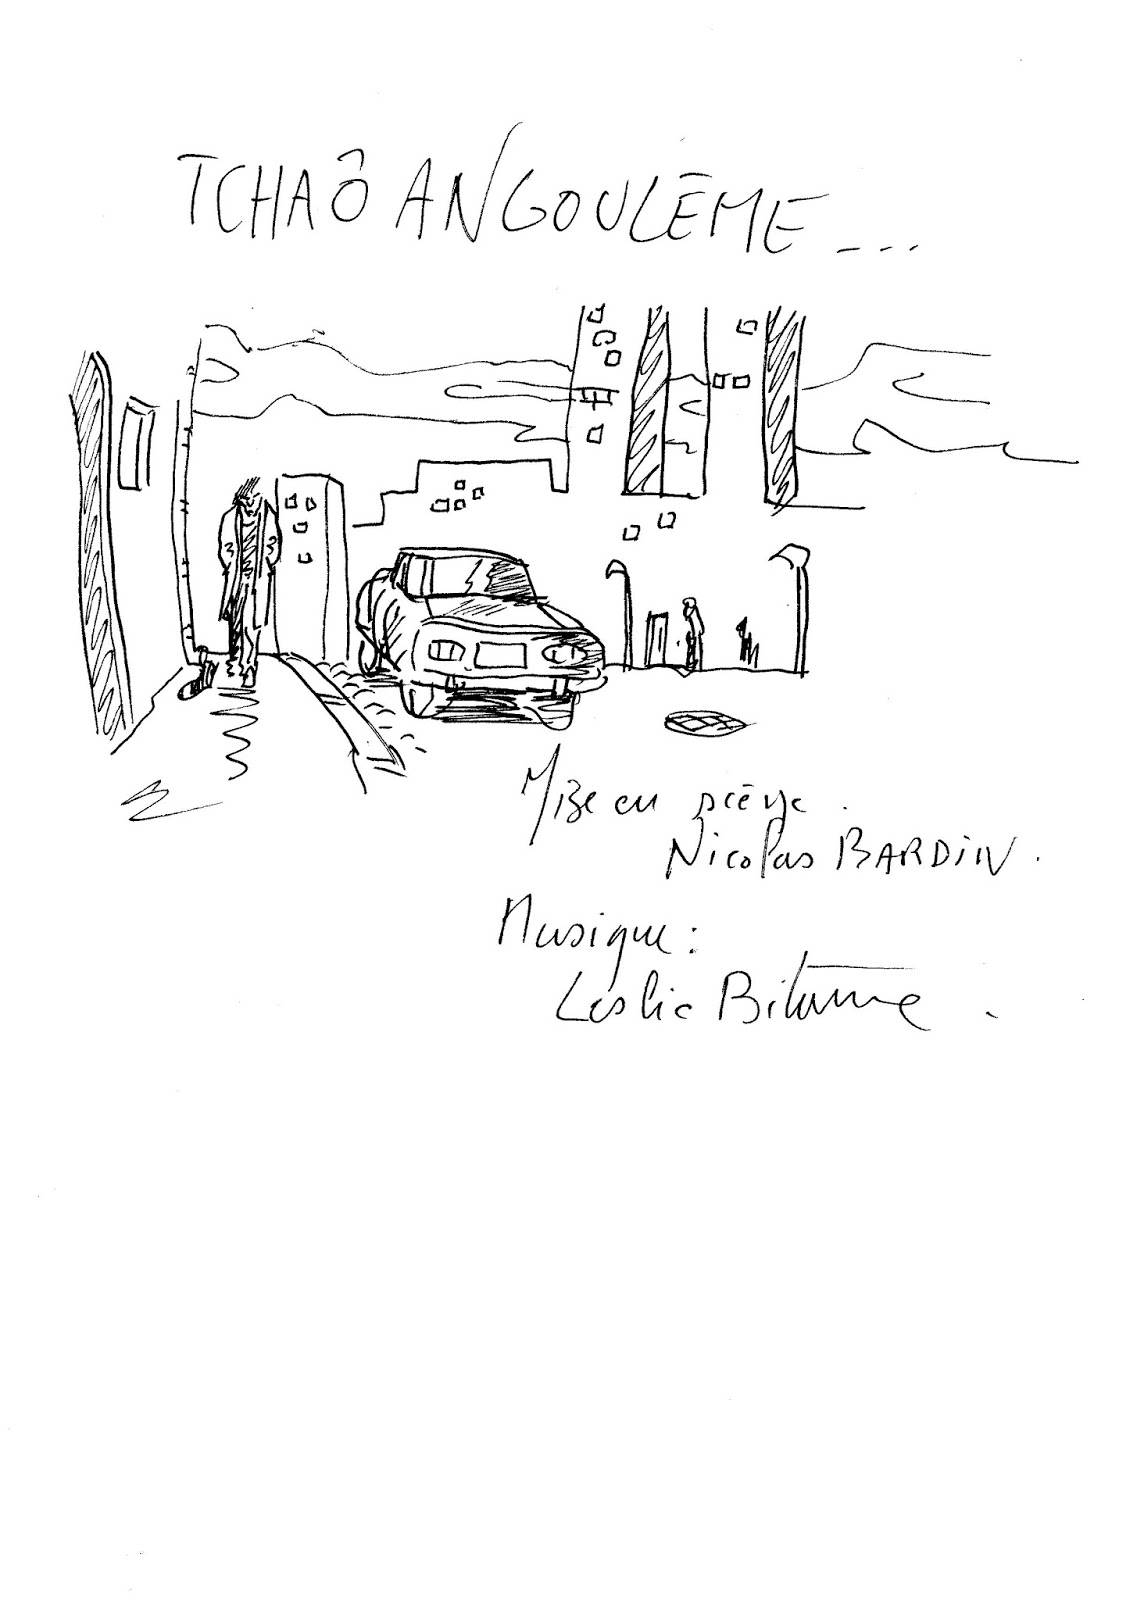 TCHAÔ ANGOULÊME...
Mise en scène.
Nicolas BARDIN.
Musique:
Leslie Bitume.